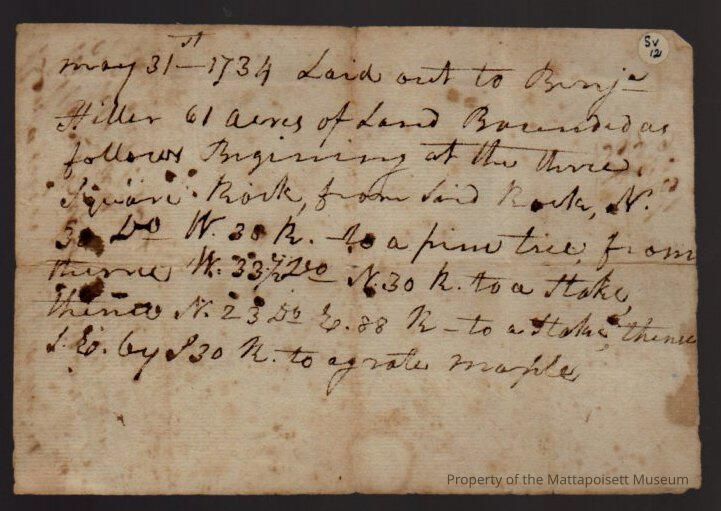 SV
12
may 31st 1734 Laid out to Benja
Hiller 61 acres of Land Bounded as
follows Begining at the three
Square Rock, from Said Rock, N.
Do W. 30 R. to a pine tree from
thence W. 33½ Do N. 30 R. to a Stake,
thence N. 23 Do E. 88 R to a Stake, thence
S. E. by S 30 R. to a grate maple
Property of the Mattapoisett Museum